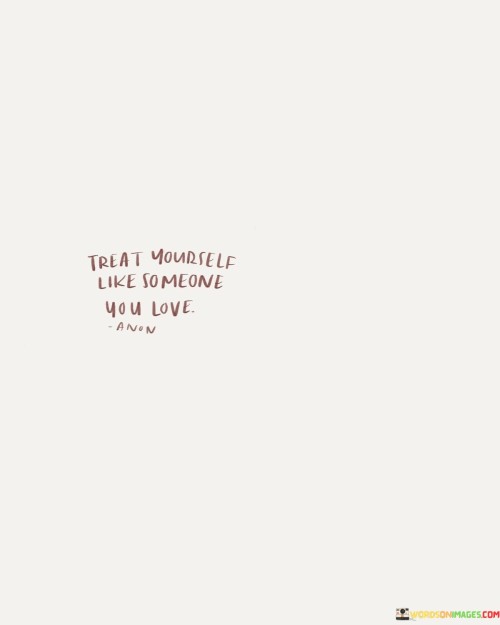 TREAT YOURSELF
LIKE SOMEONE
YOU LOVE.
- ANON
WORDSONIMAGES.COM